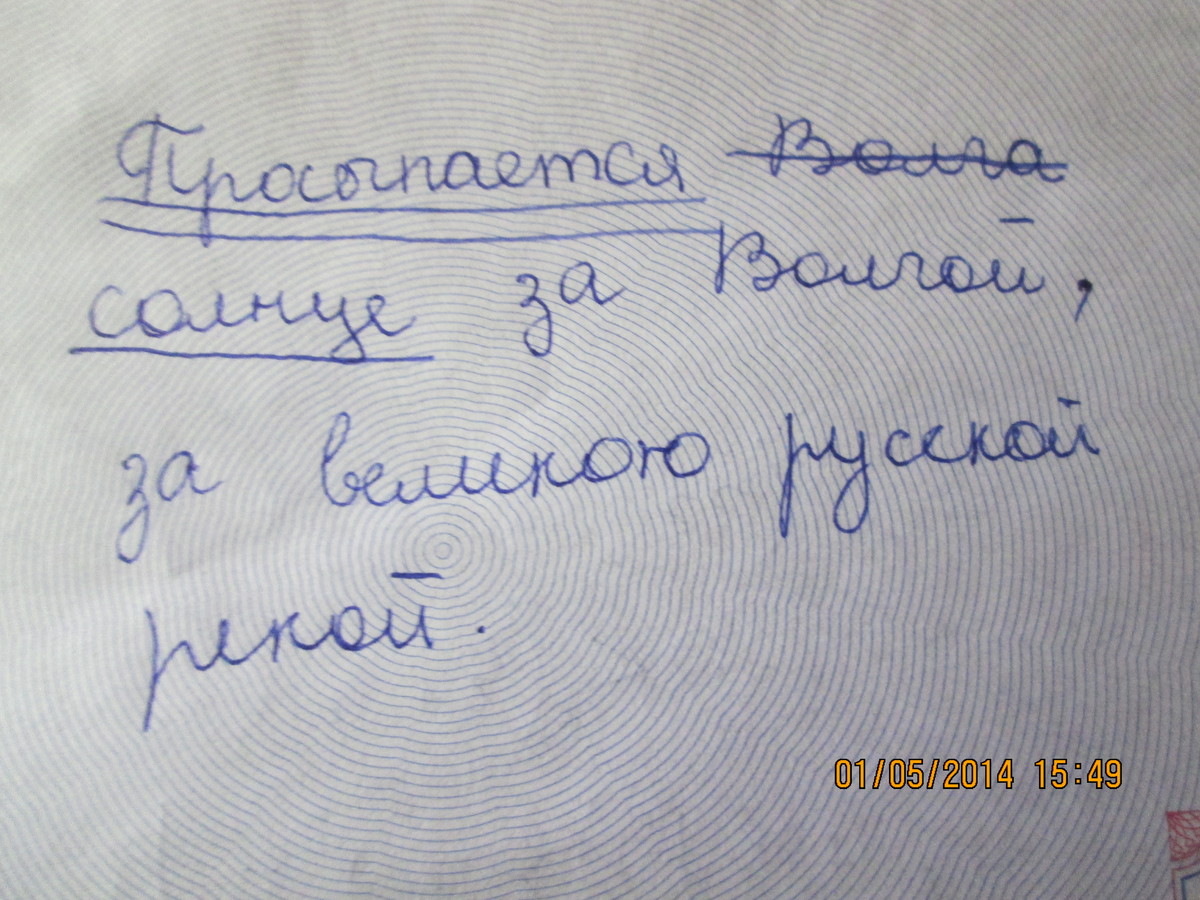 Просыпается Волга
солнце за Волгой,
за великою русской
рекой.
01/05/2014 15:49